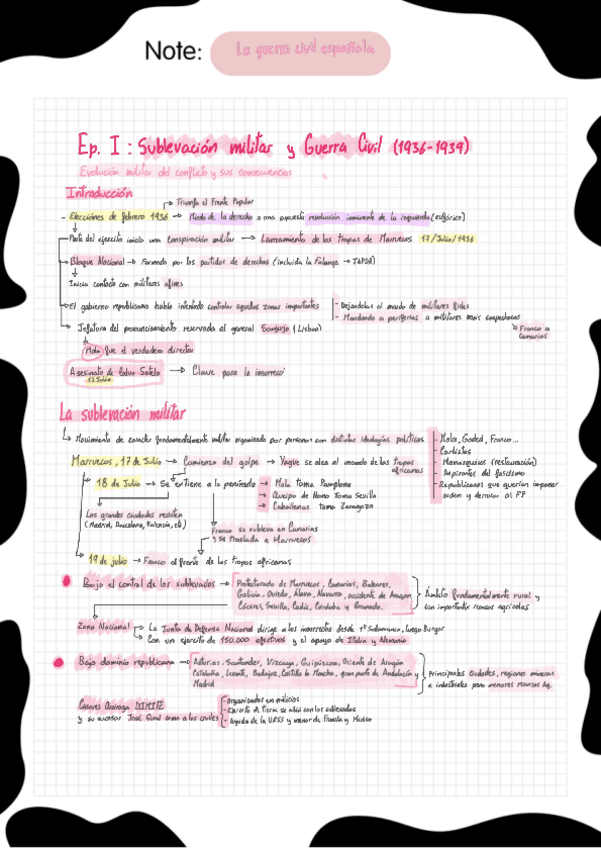 Note: La guerra civil española
Ep. I : Sublevación militar y Guerra Civil (1936-1939)
Evolución militar del conflicto y sus consecuencias
Introducción
→ Triunfa el Frente Popular
- Elecciones de febrero 1936 → Miedo de la derecha a una supuesta revolución inminente de la izquierda (eufórica)
Parte del ejercito inicia una conspiración militar → Levantamiento de las tropas de Marruecos 17/Julio/1936
Bloque Nacional → Formado por los partidos de derechas (incluida la Falange → JAPDR)
Inicia contacto con militares afines
El gobierno republicano había intentado controlar aquellas zonas importantes
- Dejandolas al mando de militares fieles
- Mandando a periferias a militares más sospechosos
→ Franco a Canarias
Jefatura del pronunciamiento reservada al general Sanjurjo (Lisboa)
Mola fue el verdadero director
Asesinato de Calvo Sotelo → Clave para la insurrecci
13 Julio
La sublevación militar
↳ Movimiento de caracter fundamentalmente militar organizado por personas con distintas ideologías políticas
- Mola, Goded, Franco...
- Carlistas
- Monarquicos (restauración)
- Aspirantes del fascismo
- Republicanos que querían imponer orden y derrocar al FP
Marruecos, 17 de Julio → Comienzo del golpe → Yague se alza al mando de las tropas africanas
18 de Julio → Se extiene a la península
→ Mola toma Pamplona
→ Queipo de Llano Toma Sevilla
→ Cabanellas toma Zaragoza
Las grandes ciudades resisten
(Madrid, Barcelona, Valencia, etc)
Franco se subleva en Canarias
y se traslada a Marruecos
19 de julio → Franco al frente de las tropas africanas
Bajo el control de los sublevados → Protectorado de Marruecos, Canarias, Baleares,
Galicia, Oviedo, Álava, Navarra, occidente de Aragón,
Cáceres, Sevilla, Cadiz, Córdoba y Granada.
Ámbito fundamentalmente rural y
con importantes recursos agrícolas
Zona Nacional → La Junta de Defensa Nacional dirige a los insurrectos desde 1º Salamanca, luego Burgos
→ Con un ejercito de 150.000 efectivos y el apoyo de Italia y Alemania
Bajo dominio republicano → Asturias, Santander, Vizcaya, Guipúzcoa, Oriente de Aragón
Cataluña, Levante, Badajoz, Castilla la Mancha, gran parte de Andalucía y
Madrid
Principales ciudades, regiones mineras
e industriales pero menores recursos Ag.
Casares Quiroga DIMITE
y su sucesor José Giral arma a los civiles
- Organizados en milicias
- Ejercito de tierra se alió con los sublevados
- Ayuda de la URSS y menor de Francia y Mexico